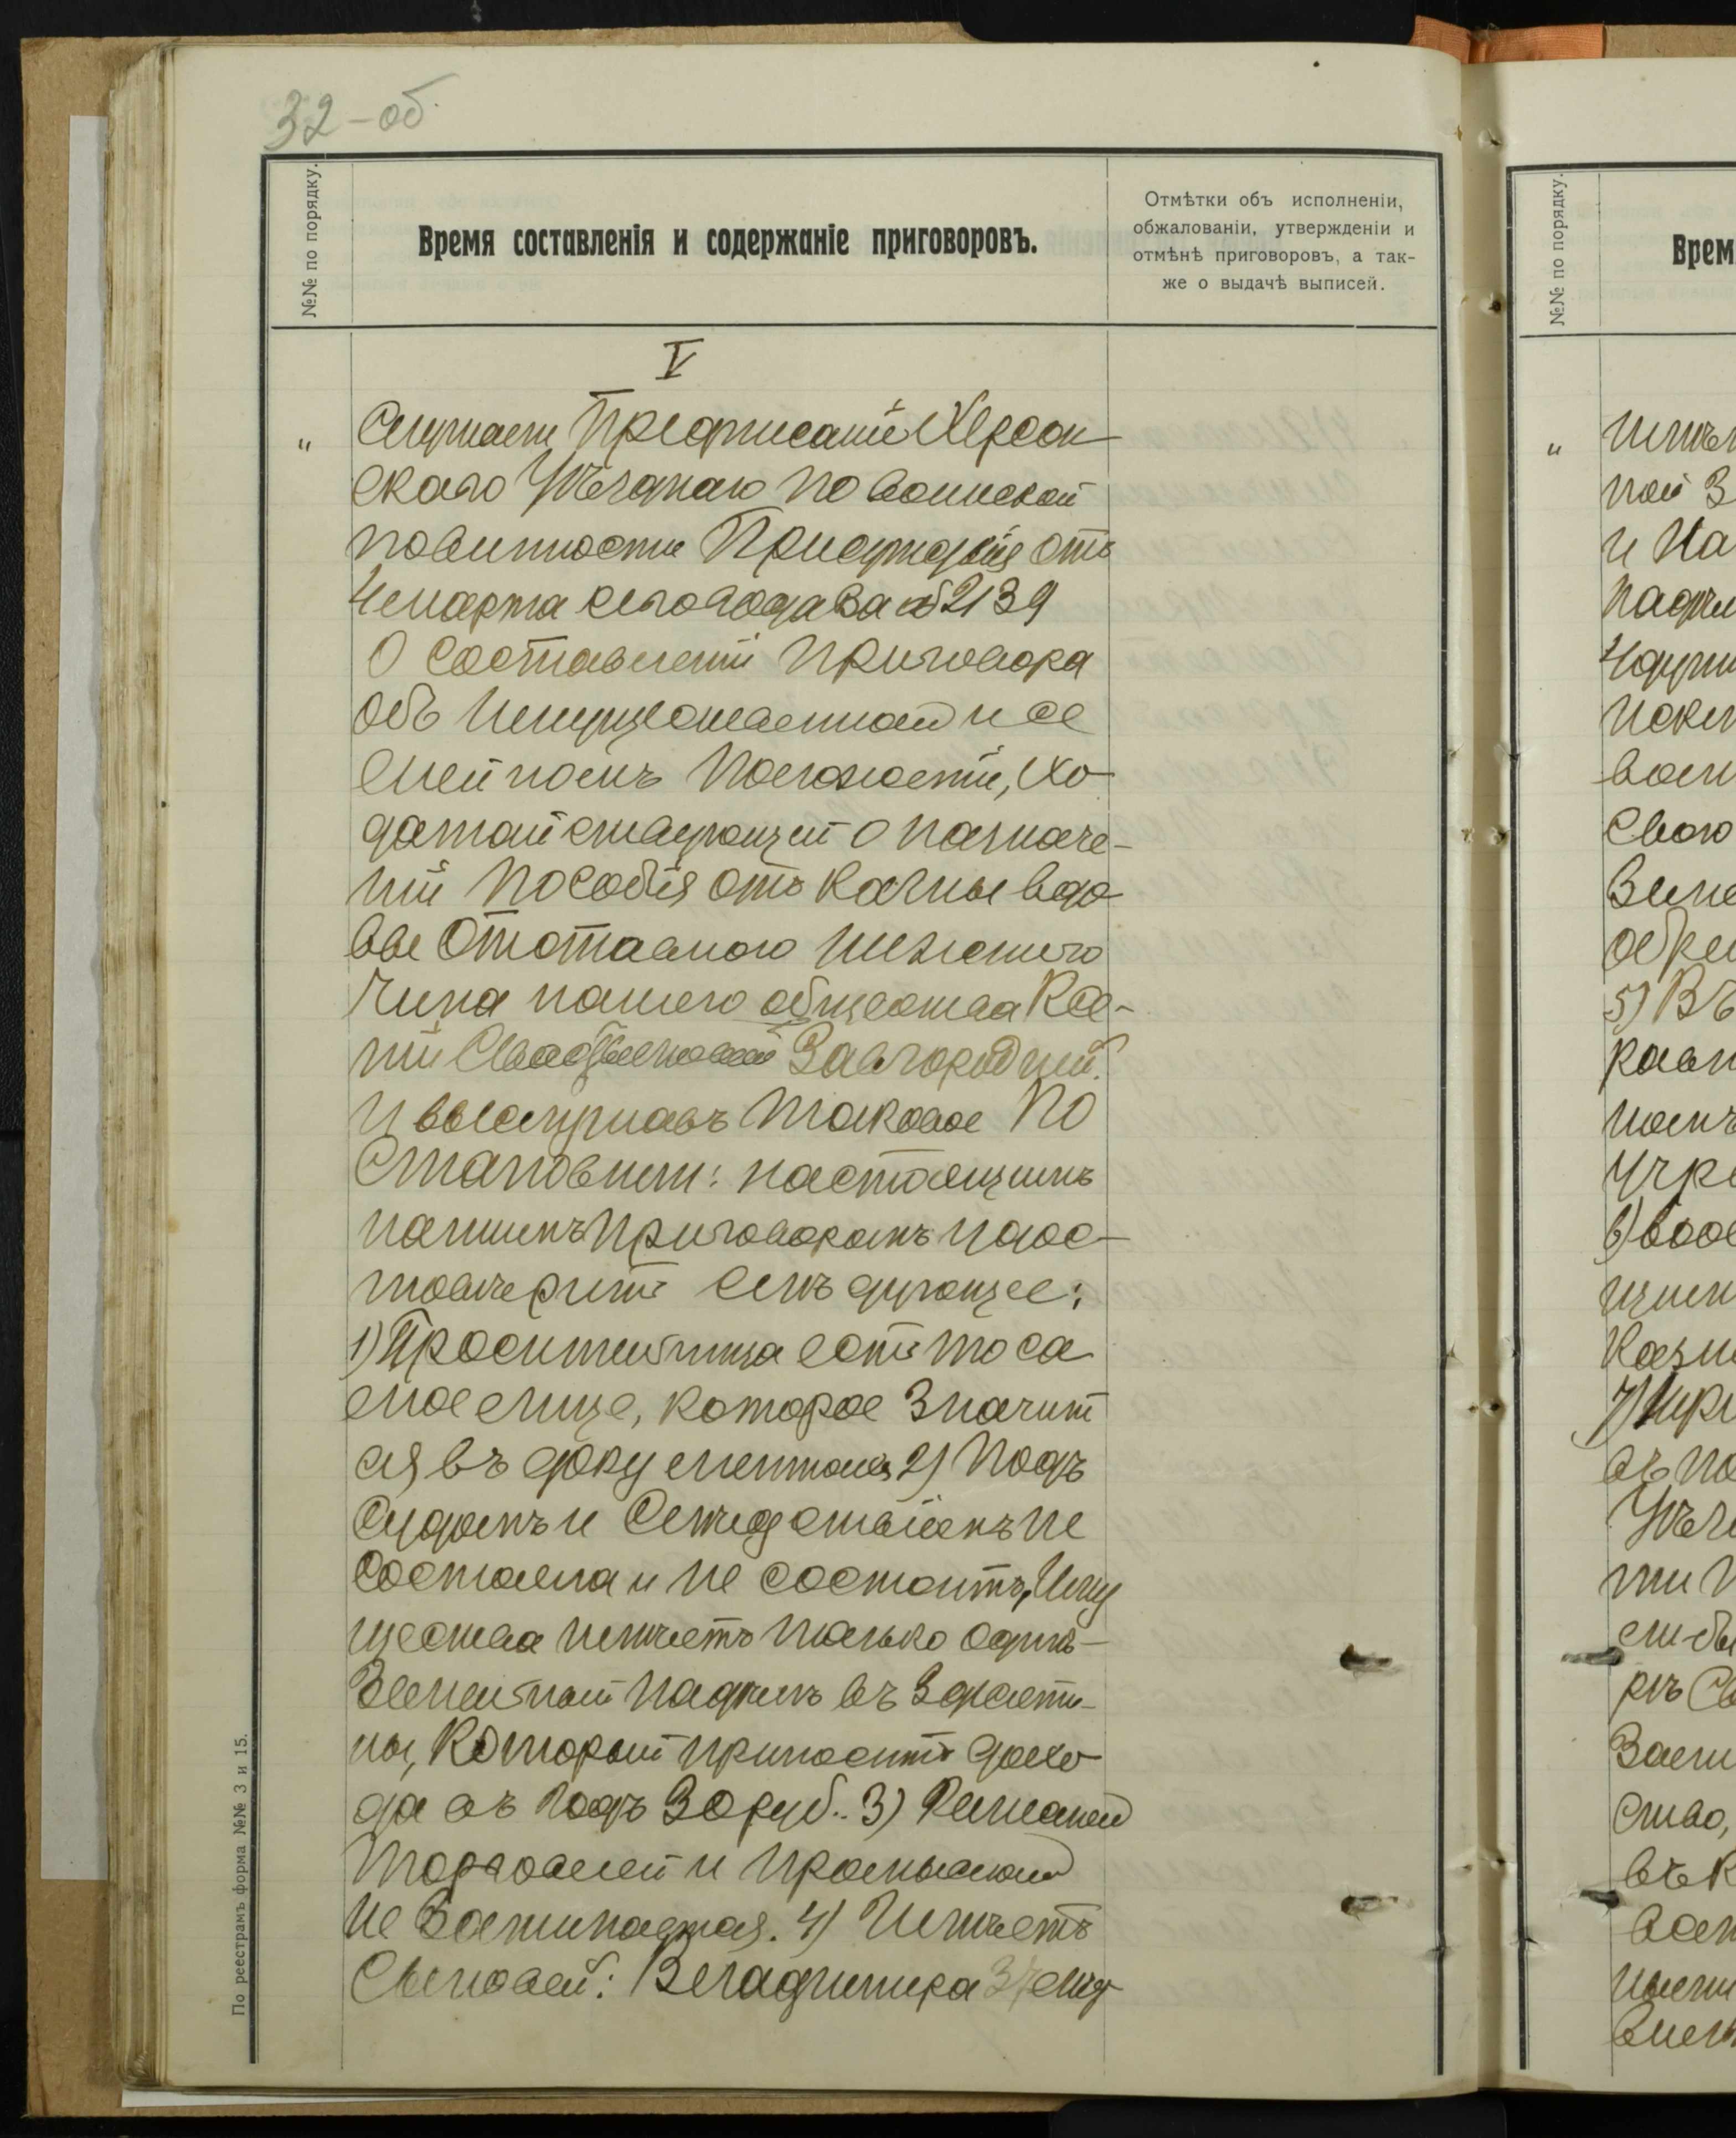 32-об.
№№ по порядку.
Время составленія и содержаніе приговоровъ.
Отмѣтки объ исполненіи,
обжалованіи, утвержденіи и
отмѣнѣ приговоровъ, а так-
же о выдачѣ выписей.
V
" Слушаем Предписаніе Херсон
скаго Уѣзднаго по воинской
повинности Присутствія отъ
марта сего года за № 2139
О составленіи приговора
объ имущественном и се
мейномъ положеніи, хо
датайствующей о назначе-
ніи пособія отъ казны вдо
вы отставного нижнего
чина нашего общества Ксе-
ніи Завгородней.
И выслушавъ таковое по
становили: настоящимъ
нашимъ приговоромъ удос-
товѣрить слѣдующее:
1) Просительница есть то са
мое лице, которое значит
ся въ документах 2) Подъ
судомъ и слѣдствіемъ не
состояла и не состоитъ, Иму
щества имѣетъ только одинъ
земельный надѣлъ въ 3 десяти-
ны, который приноситъ дохо
да въ годъ 30 руб. 3) Ремеслом
торговлей и промыслом
не занимается. 4) Имѣетъ
Сыновей: Владимира
По реестрамъ форма №№ 3 и 15.
№№ по порядку.
Врем
"
и На
5) Въ